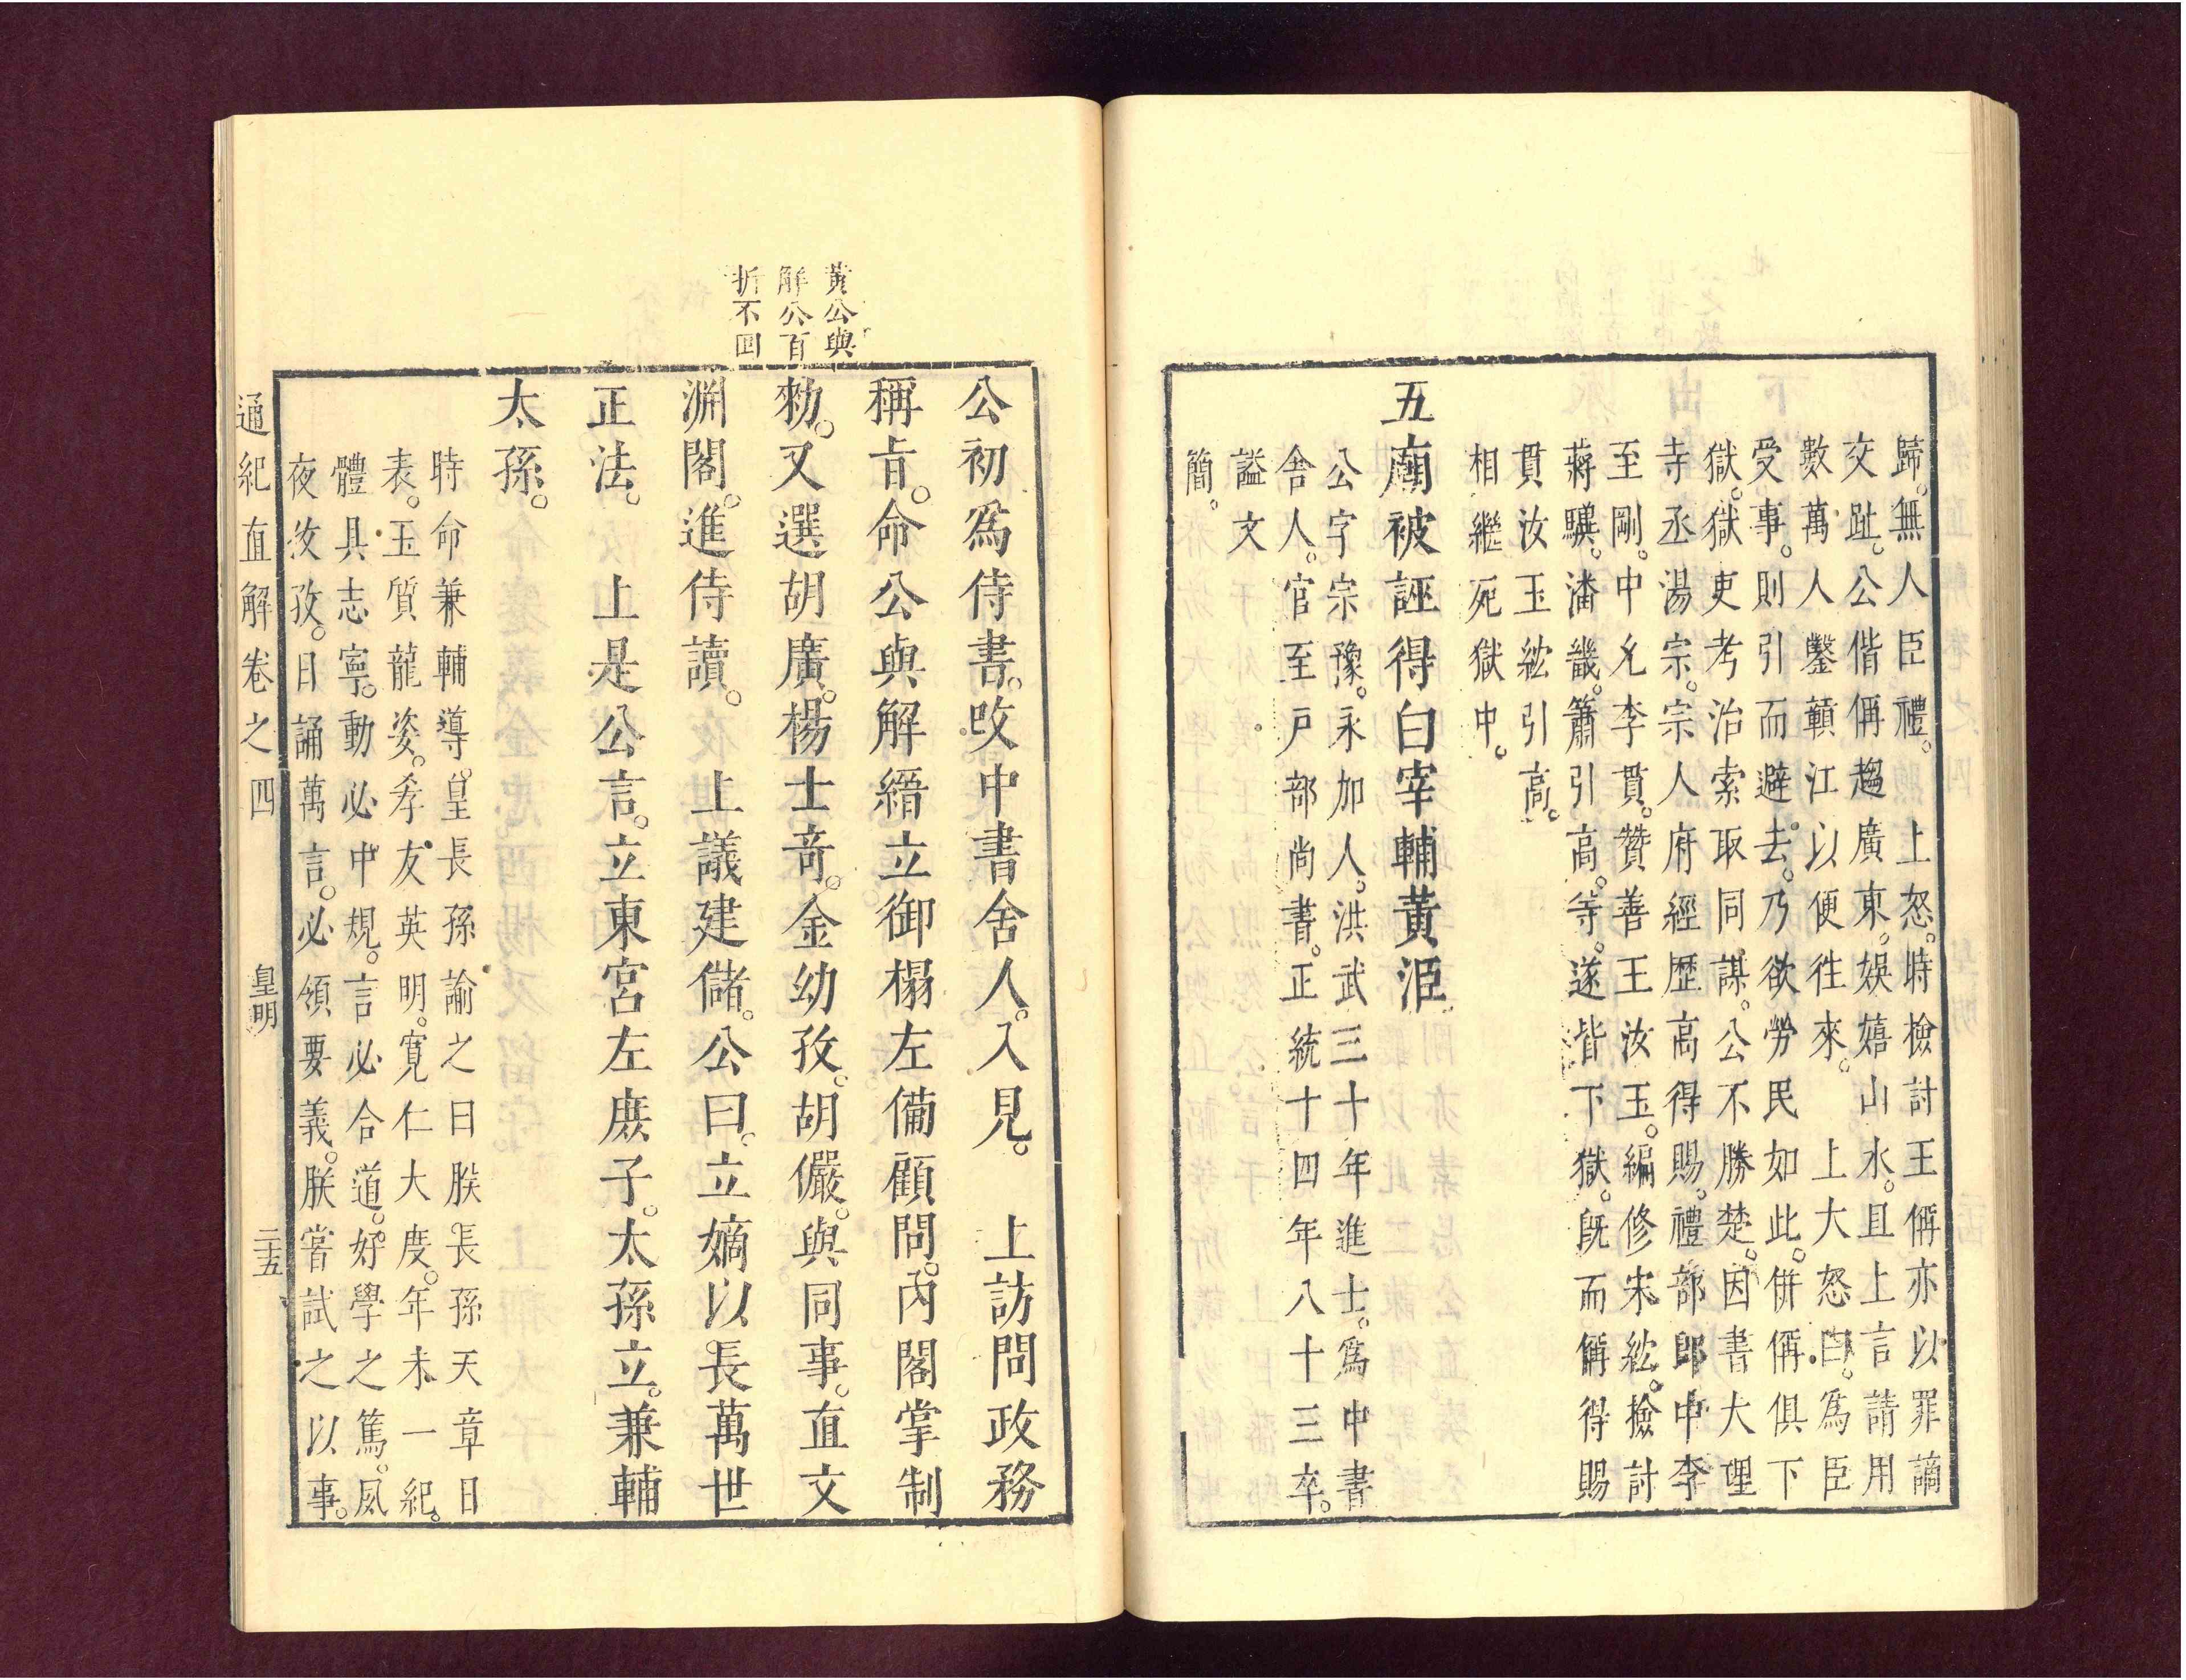 歸。無人臣禮。　上怒。時檢討王偁亦以罪謫
交趾。公偕偁趨廣東。娛嬉山水。且上言請用
數萬人鑿贛江以便徃來。　上大怒曰。爲臣
受事。則引而避去。乃欲勞民如此。併偁俱下
獄。獄吏考治索取同謀。公不勝楚。因書大理
寺丞湯宗。宗人府經歷高得賜。禮部郎中李
至剛。中允李貫。贊善王汝玉。編修宋紘。檢討
蔣驥。潘畿。簫引高。等。遂皆下獄。旣而偁得賜
貫汝玉紘引高。
相繼死獄中。
五廟被誣得白宰輔黃淮
公字宗豫。永加人。洪武三十年進士。爲中書
舍人。官至戶部尙書。正統十四年八十三卒。
謚文
簡。
黃公與
解公百
折不回
公初爲侍書。改中書舍人。入見。　上訪問政務
稱旨。命公與解縉立御榻左備顧問。內閣掌制
勑。又選胡廣。楊士奇。金幼孜。胡儼。與同事。直文
淵閣。進侍讀。　上議建儲。公曰。立嫡以長萬世
正法。　上是公言。立東宮左庶子。太孫立。兼輔
太孫。
時命兼輔導。皇長孫諭之曰朕長孫天章日
表。玉質龍姿。孝友英明。寬仁大度。年未一紀。
體具志寧。動必中規。言必合道。好學之篤。夙
夜孜孜。日誦萬言。必領要義。朕嘗試之以事。
通紀直解卷之四　皇明　二十五